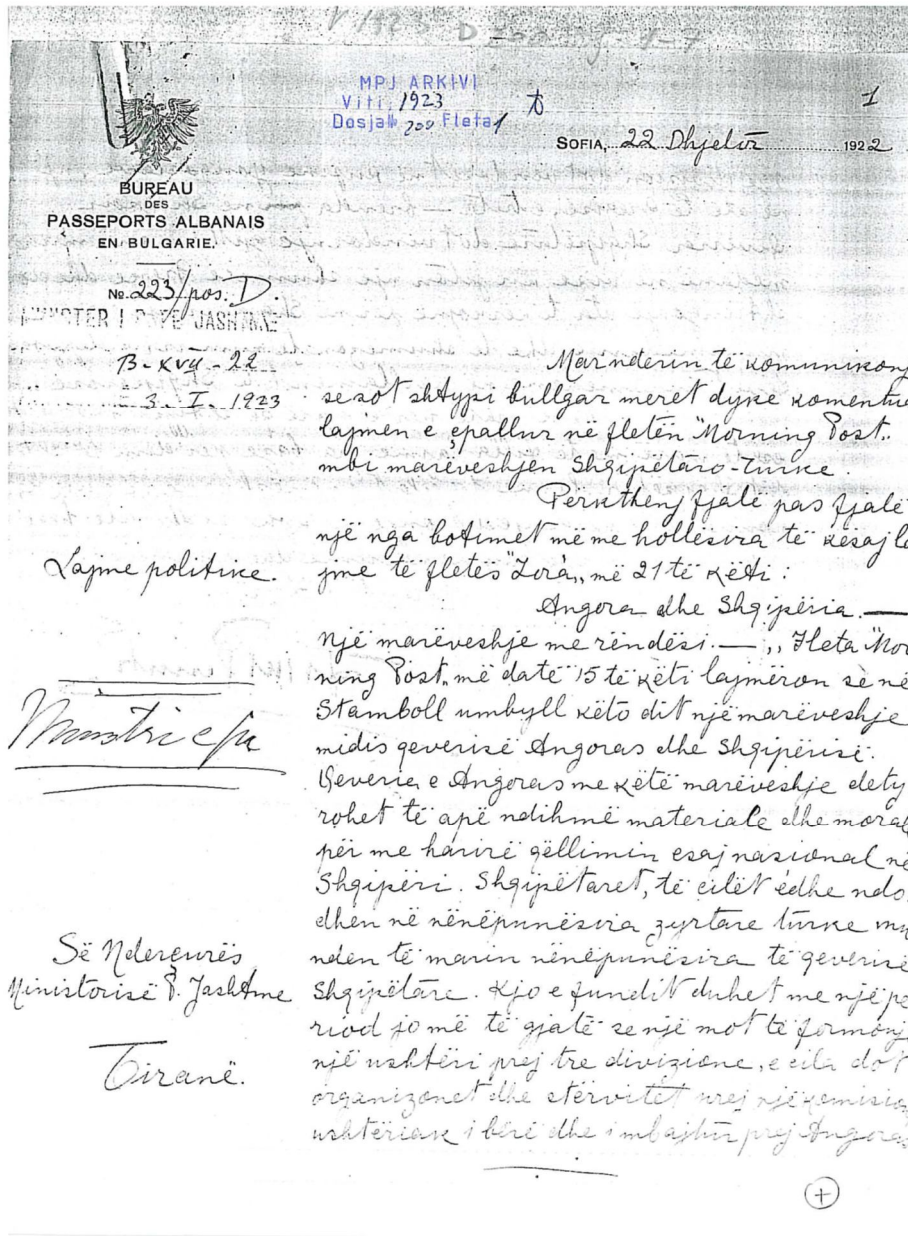 V 1923 D-209 f 1-7
MPJ ARKIVI
Viti, 1923
Dosja№ 209 Fleta 1
1
SOFIA, 22 Dhjetór 1922
BUREAU
DES
PASSEPORTS ALBANAIS
EN BULGARIE.
No. 223/pos. D.
B-XVII-22
3. I. 1923
Mar nderin të komunikonj
se sot shtypi bullgar meret dyke komentue
lajmen e çpallur në fletën "Morning Post„
mbi marëveshjen Shqipëtaro-Turke.
Përkthenj fjalë pas fjalë
një nga botimet më me hollësira të kësaj la
jme të fletës "Zorà„ më 21 të këti:
Lajme politike.
Angora dhe Shqipëria. —
Një marëveshje me rëndësi. — „Fleta "Mor
ning Post„ më datë 15 të këti lajmëron së në
Stamboll u mbyll këto dit një marëveshje
midis qeverisë Angoras dhe Shqipërisë.
Qeveria e Angoras me këtë marëveshje dety
rohet të apë ndihmë materiale dhe morale
për me harirë qëllimin e saj nasional në
Shqipëri. Shqipëtaret, të cilët édhe ndo
dhen në nënëpunësira zyrtare turke mu
nden të marin nënëpunësira të qeverisë
Shqipëtare. Kjo e fundit duhet me një pe
riod jo më të gjatë se një mot të formonj
një ushtëri prej tre divizione, e cila dot
organizonet dhe stërvitet prej një kemision
ushtëriak i bërë dhe i mbajtur prej Angoras
Së Ndereçurës
Ministorisë P. Jashtme
Tiranë.
+